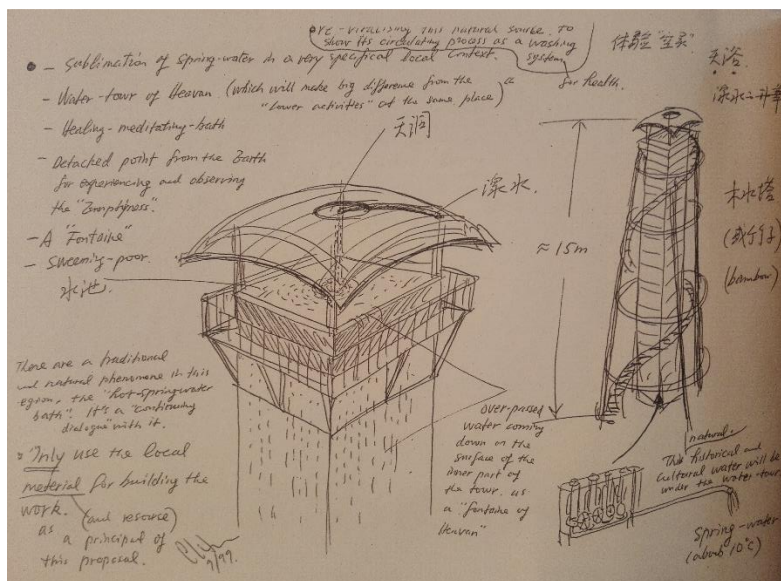 • re-vitalizing this natural source. To
show its circulating process as a washing
system
for health.
• - Sublimation of spring-water in a very specifical local context.
- Water-tour of Heaven. (which will make big difference from the
"lower activities" at the same place)
- Healing-meditating-bath
- Detached point from the Earth
for experiencing and observing
the "Emptyness".
- A "Fontaine"
- Sweeming-poor.
水池
天洞
滚水.
体验"空灵"
天浴.
≈15m
木水塔
(或竹子)
(bambou)
There are a traditional
and natural phenomene in this
egion, the "hot-springwater
bath". It's a "continuing
dialogue" with it.
Only use the local
material for building the
work. (and resource)
as a principal of
this proposal.
7/99.
over-passed
water coming
down on the
surface of the
inner part of
the tour. as
a "fontaine of
Heaven"
natural.
This historical and
cultural water will be
under the water-tour
Spring-water
(about 10°C)